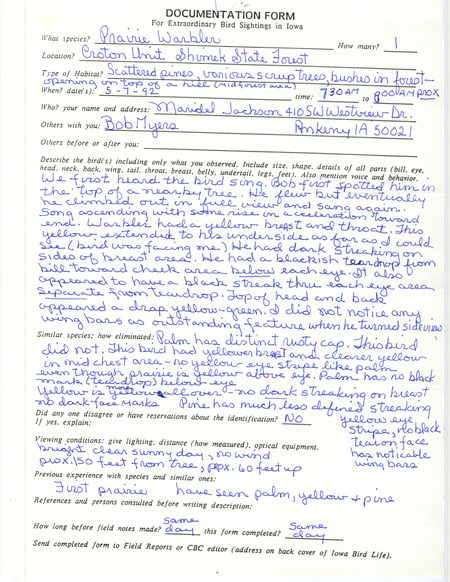 DOCUMENTATION FORM
For Extraordinary Bird Sightings in Iowa
What species? Prairie Warbler How many? 1
Location? Croton Unit Shimek State Forest
Type of Habitat? Scattered pines, various scrup trees, bushes in forest-
opening on top of a hill (midforest area)
When? date(s): 5-7-92 time: 730AM to 800AM aprox
Who? your name and address: Maridel Jackson 410 SW Westview Dr.
Others with you: Bob Myers Ankeny IA 50021
Others before or after you:
Describe the bird(s) including only what you observed. Include size, shape, details of all parts (bill, eye,
head, neck, back, wing, tail, throat, breast, belly, undertail, legs, feet). Also mention voice and behavior.
We first heard the bird sing. Bob first spotted him in
the top of a nearby tree. He flew but eventually
he climbed out in full view and sang again.
Song ascending with some rise in acceleration toward
end. Warbler had a yellow breast and throat. This
yellow extended to his underside as far as I could
see (bird was facing me). He had dark streaking on
sides of breast area. He had a blackish teardrop from
bill toward cheek area below each eye. It also
appeared to have a black streak thru each eye area
separate from teardrop. Top of head and back
appeared a drap yellow-green. I did not notice any
wing bars as outstanding feature when he turned sideview
Similar species; how eliminated: Palm has distinct rusty cap. This bird
did not. This bird had yellower breast and clearer yellow
in mid chest area - no yellow eye stripe like palm
even though prairie is yellow above eye. Palm has no black
mark (teardrop) below eye
Yellow is more yellow all over - no dark streaking on breast
no dark face marks Pine has much less defined streaking
Did any one disagree or have reservations about the identification? NO yellow eye
If yes, explain: stripe, no black
tear on face
Viewing conditions: give lighting, distance (how measured), optical equipment. has noticable
bright clear sunny day, no wind wing bars
prox. 150 feet from tree, prox. 60 feet up
Previous experience with species and similar ones:
First prairie have seen palm, yellow + pine
References and persons consulted before writing description:
How long before field notes made? same day this form completed? same day
Send completed form to Field Reports or CBC editor (address on back cover of Iowa Bird Life).